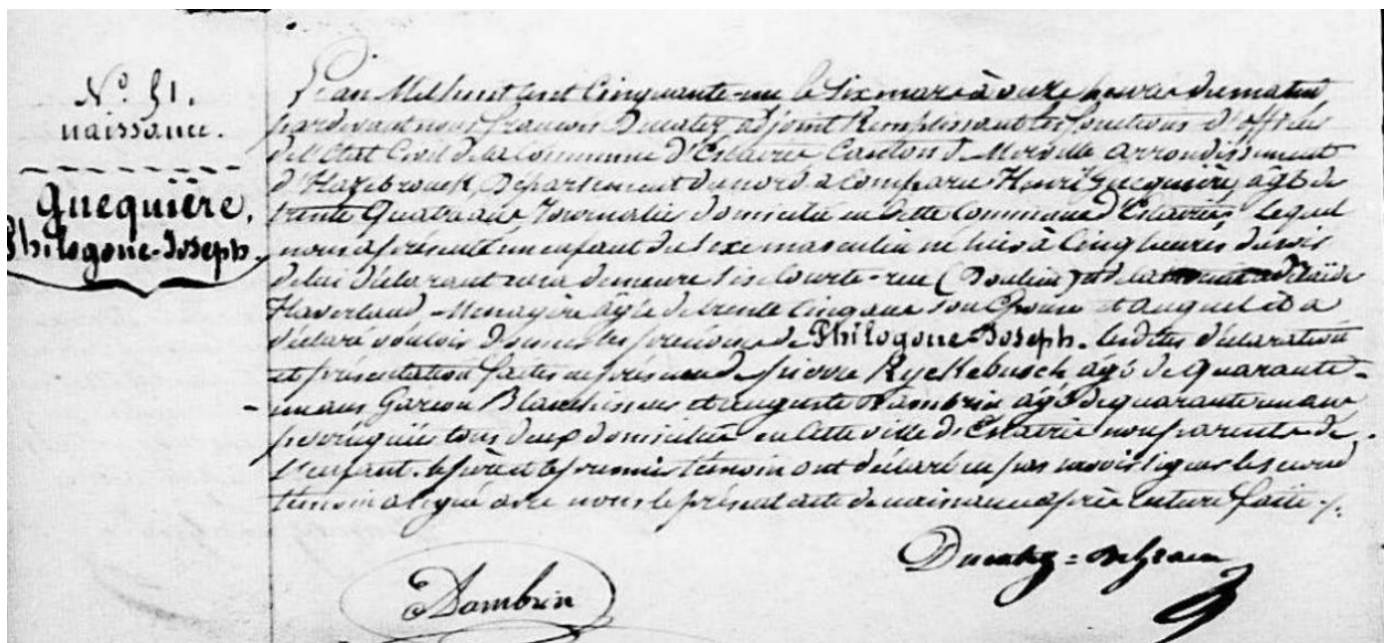 N.° 51.
naissance.
Guequière,
Philogone-Joseph.
L'an Mil huit cent Cinquante-un le Six mars à onze heures du matin
pardevant nous françois Ducatez adjoint Remplissant les fonctions d'officier
de l'Etat Civil de la Commune d'Estaires Canton de Merville arrondissement
d'Hazebrouck, Département du nord a Comparu Henri Guequière, âgé de
trente Quatre ans Journalier domicilié en Cette Commune d'Estaires lequel
nous a présenté un enfant du sexe masculin né hier à Cinq heures du soir
de lui déclarant en sa demeure sise Courte-rue et de adelaïde
Haverland, Menagère âgée de trente Cinq ans son Epouse et auquel il a
déclaré vouloir donner les prénoms de Philogone-Joseph. lesdites déclaration
et présentation faites en présence de pierre Ryckebusch âgé de quarante-
un ans Garcon Blanchisseur et auguste Dambrin âgé de quarante un ans
perruquier tous deux domiciliés en Cette ville d'Estaires non parents de
l'enfant. le père et le premier témoin ont déclaré ne pas savoir signer le second
témoin a signé avec nous le présent acte de naissance après lecture faite./.
Ducatez =
Dambrin